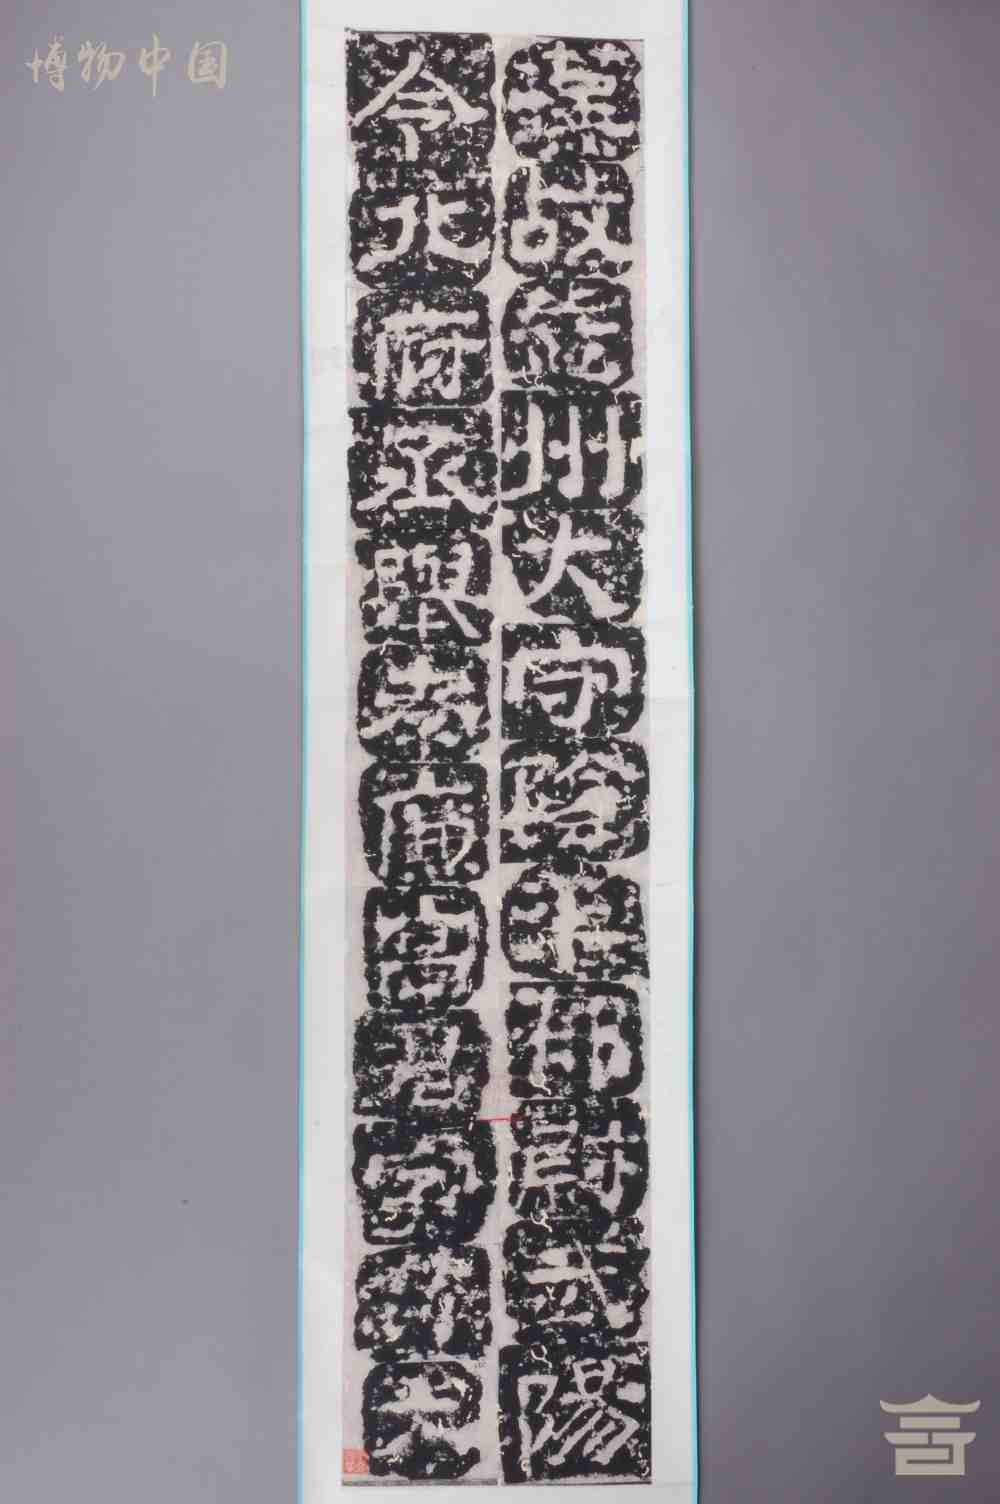 博物中国
漢故益州大守陰平都尉武陽
令北府丞舉孝廉高君字貫光